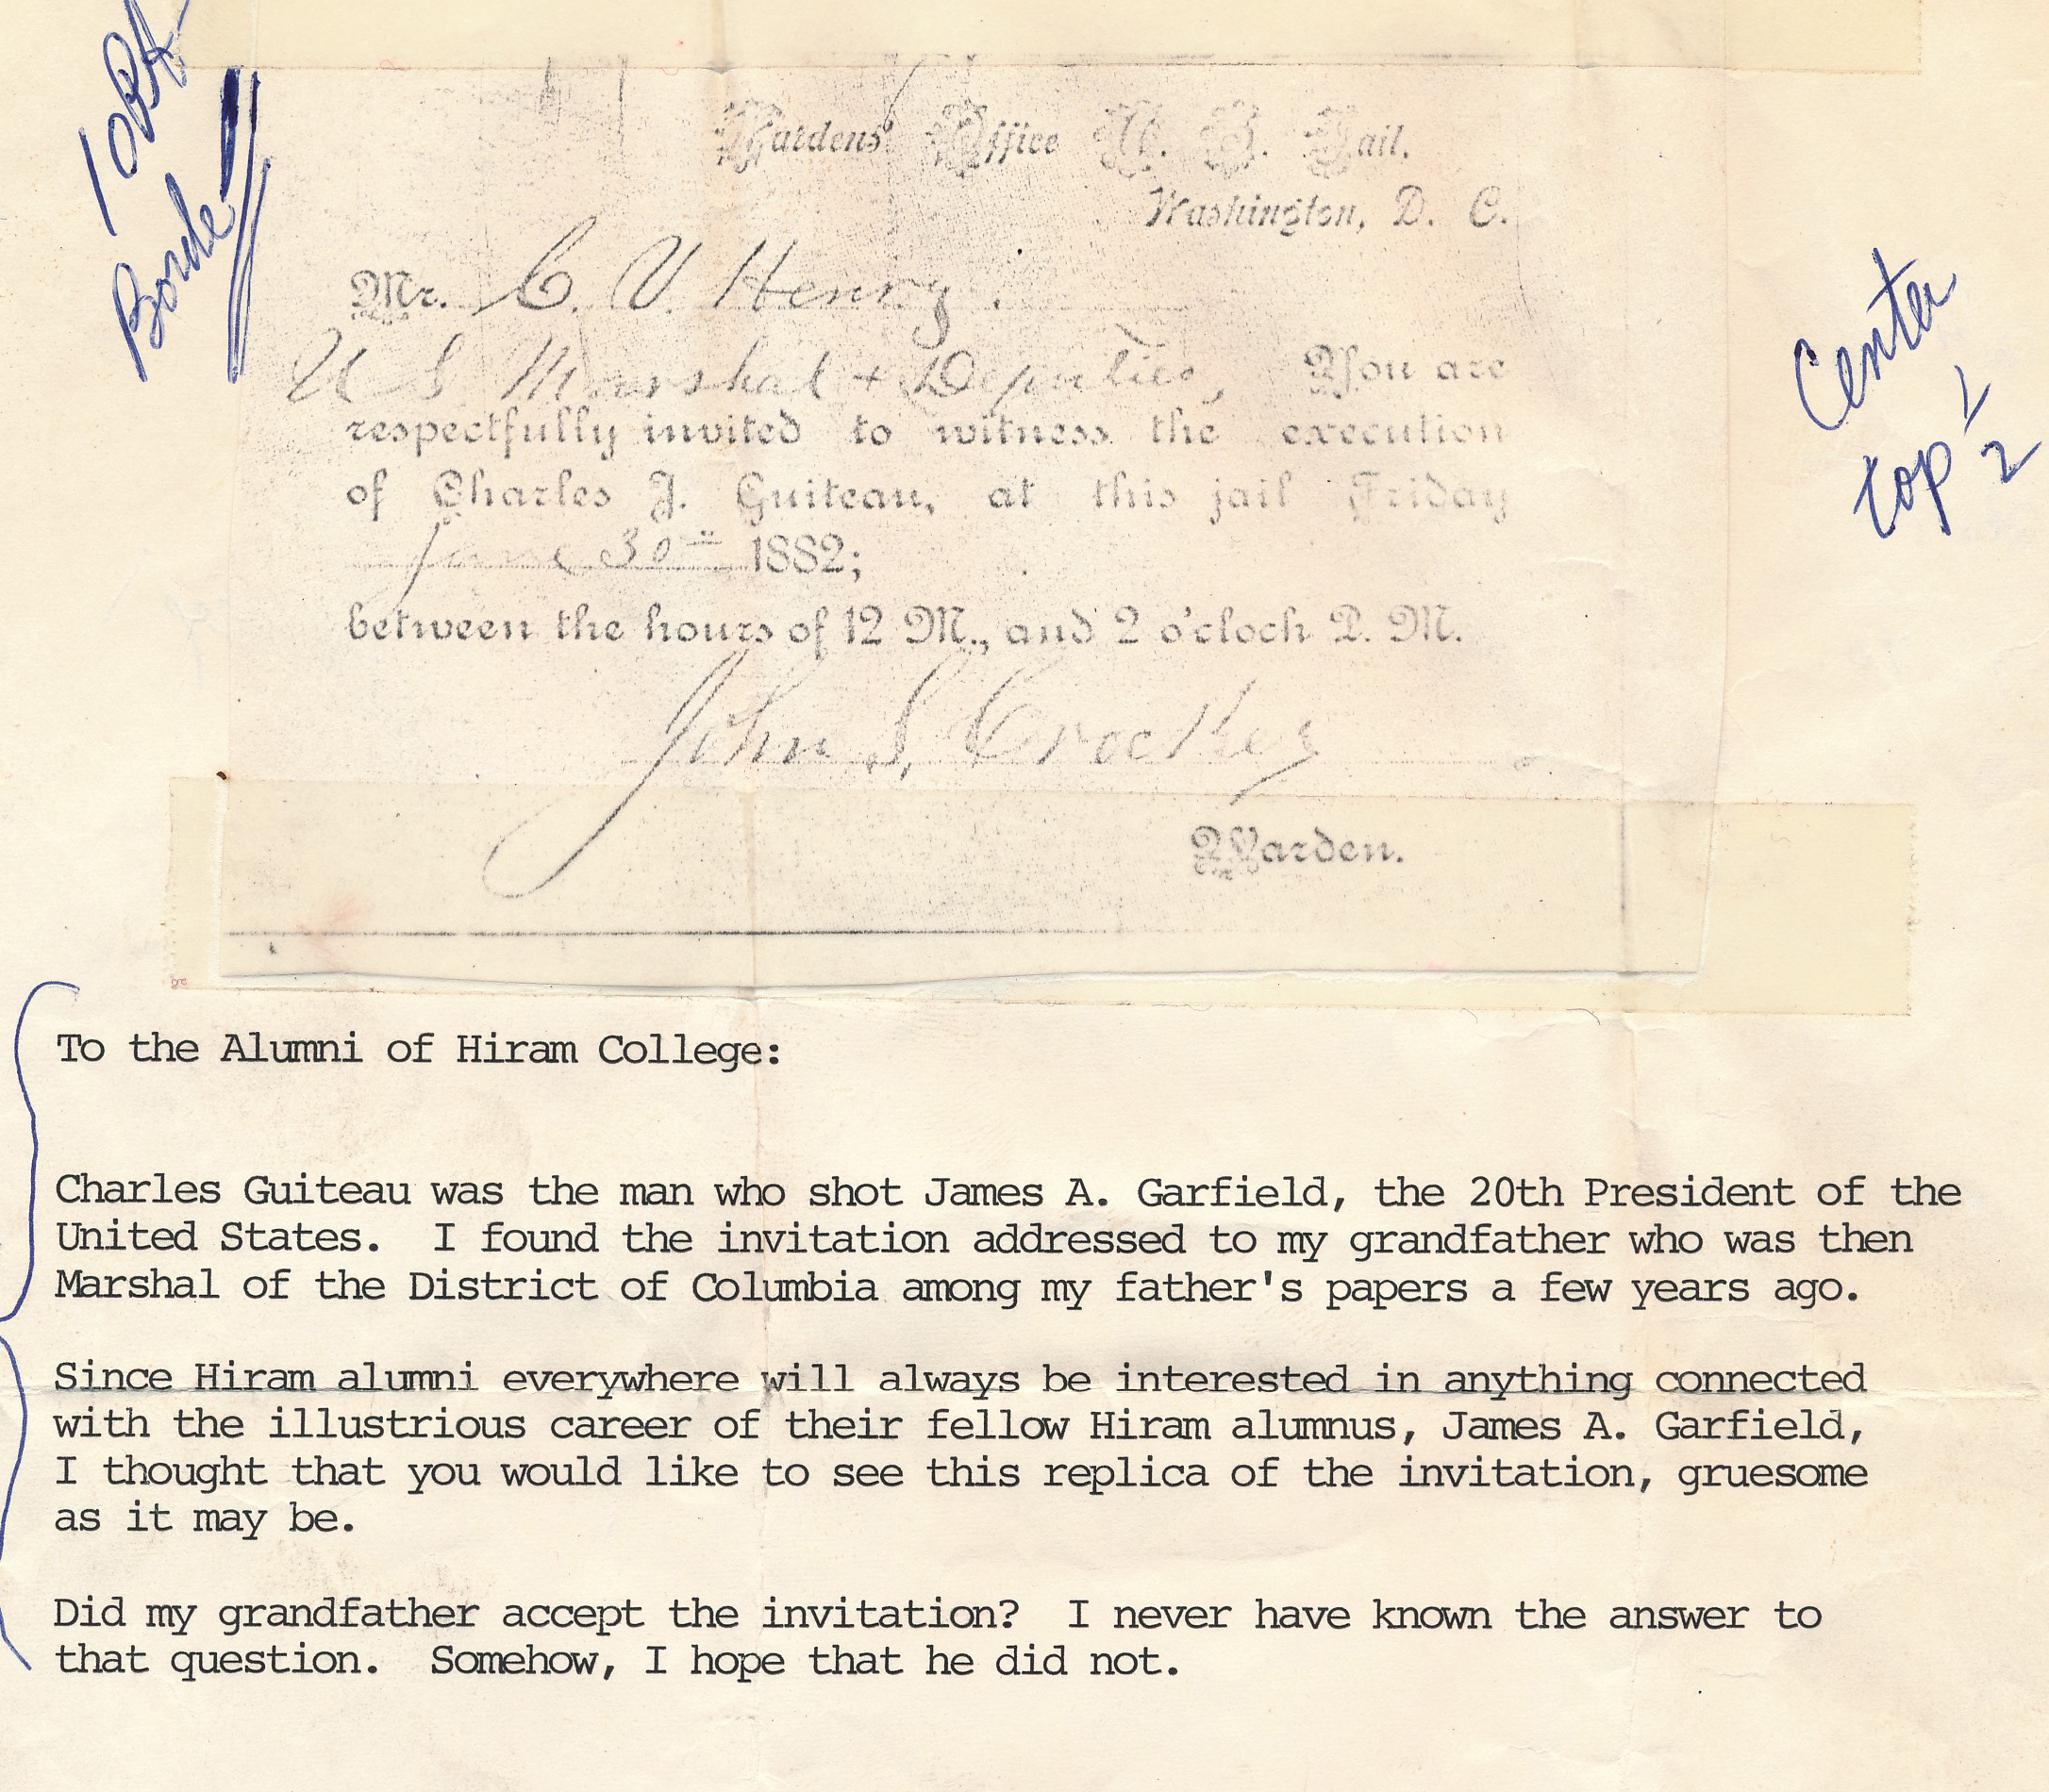 10pt
Border
Wardens' Office U. S. Jail.
Washington, D. C.
Mr. C. V. Henry.
U S Marshal + Deputies, You are
respectfully invited to witness the execution
of Charles J. Guiteau, at this jail Friday
June 30th 1882;
between the hours of 12 M., and 2 o'clock P. M.
John S. Crocker
Warden.
Center
top 1/2
To the Alumni of Hiram College:
Charles Guiteau was the man who shot James A. Garfield, the 20th President of the
United States. I found the invitation addressed to my grandfather who was then
Marshal of the District of Columbia among my father's papers a few years ago.
Since Hiram alumni everywhere will always be interested in anything connected
with the illustrious career of their fellow Hiram alumnus, James A. Garfield,
I thought that you would like to see this replica of the invitation, gruesome
as it may be.
Did my grandfather accept the invitation? I never have known the answer to
that question. Somehow, I hope that he did not.